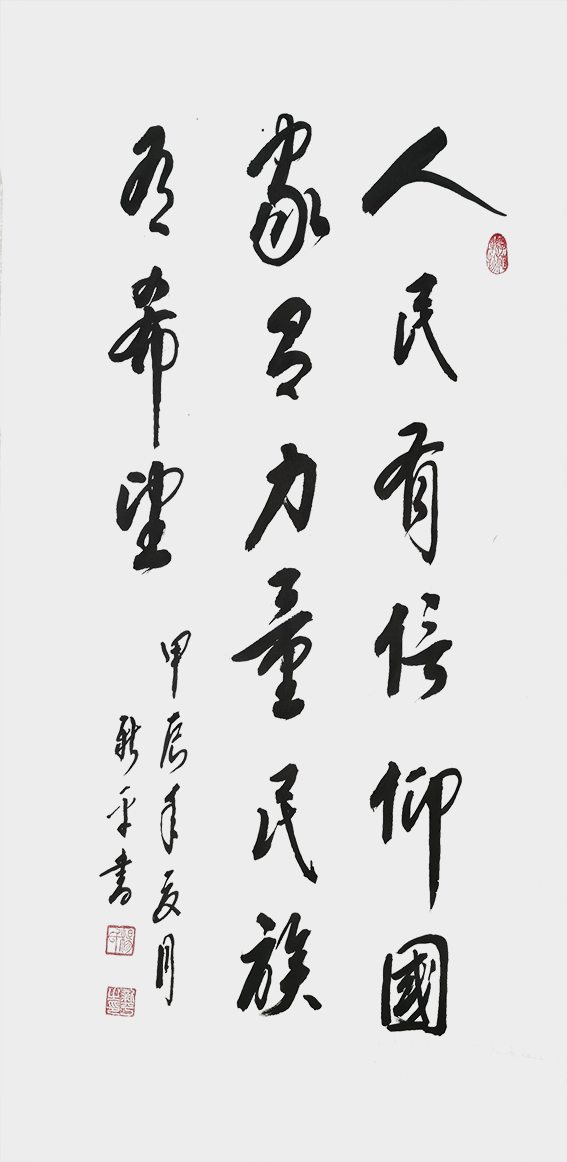 人民有信仰國
家有力量民族
有希望
甲辰年夏月
新平书